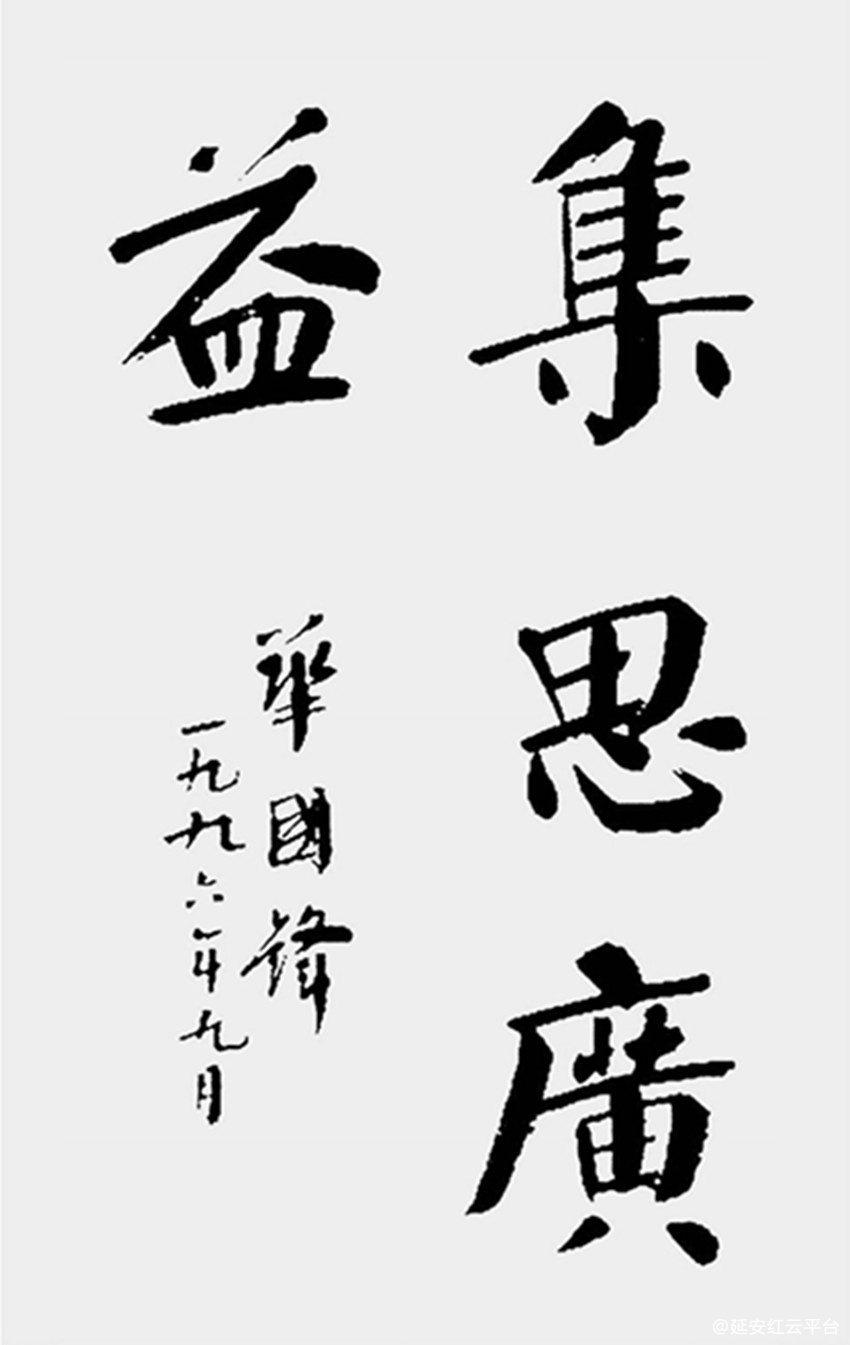 集思廣
益
華國鋒
一九九六年九月
@延安红云平台